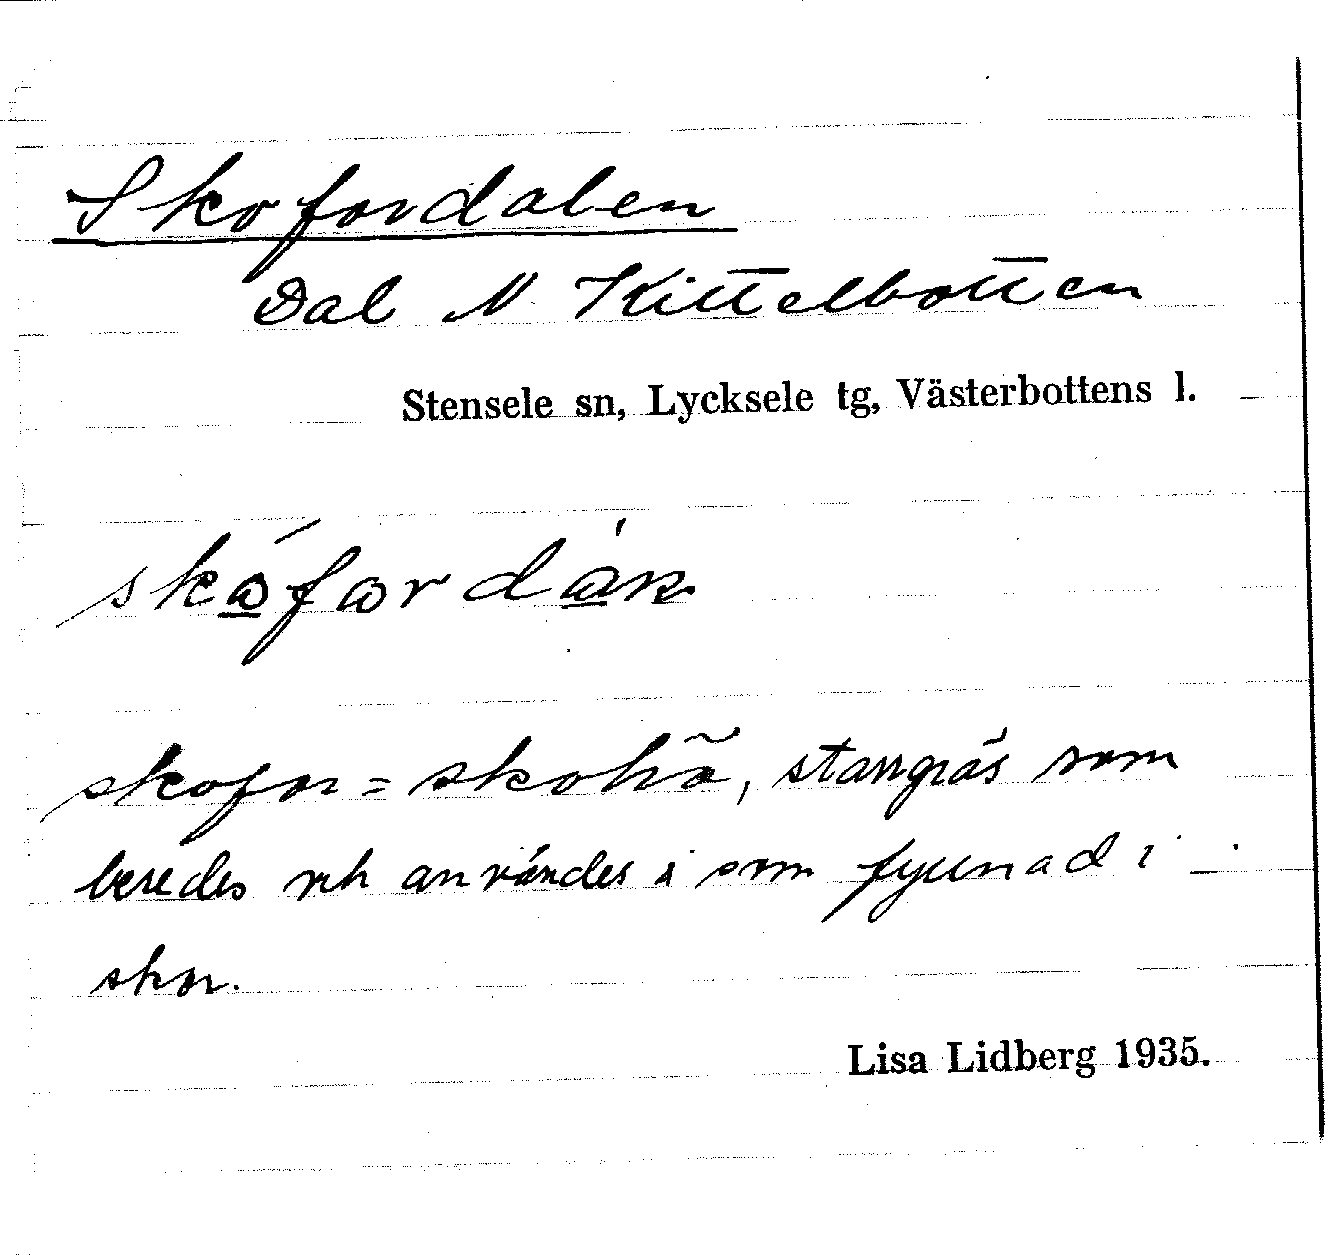 Skofordalen
Dal N Kittelbotten
Stensele sn, Lycksele tg, Västerbottens l.
skofor = skohö, starrgräs som
beredes och användes som fyllnad i
skor.
Lisa Lidberg 1935.